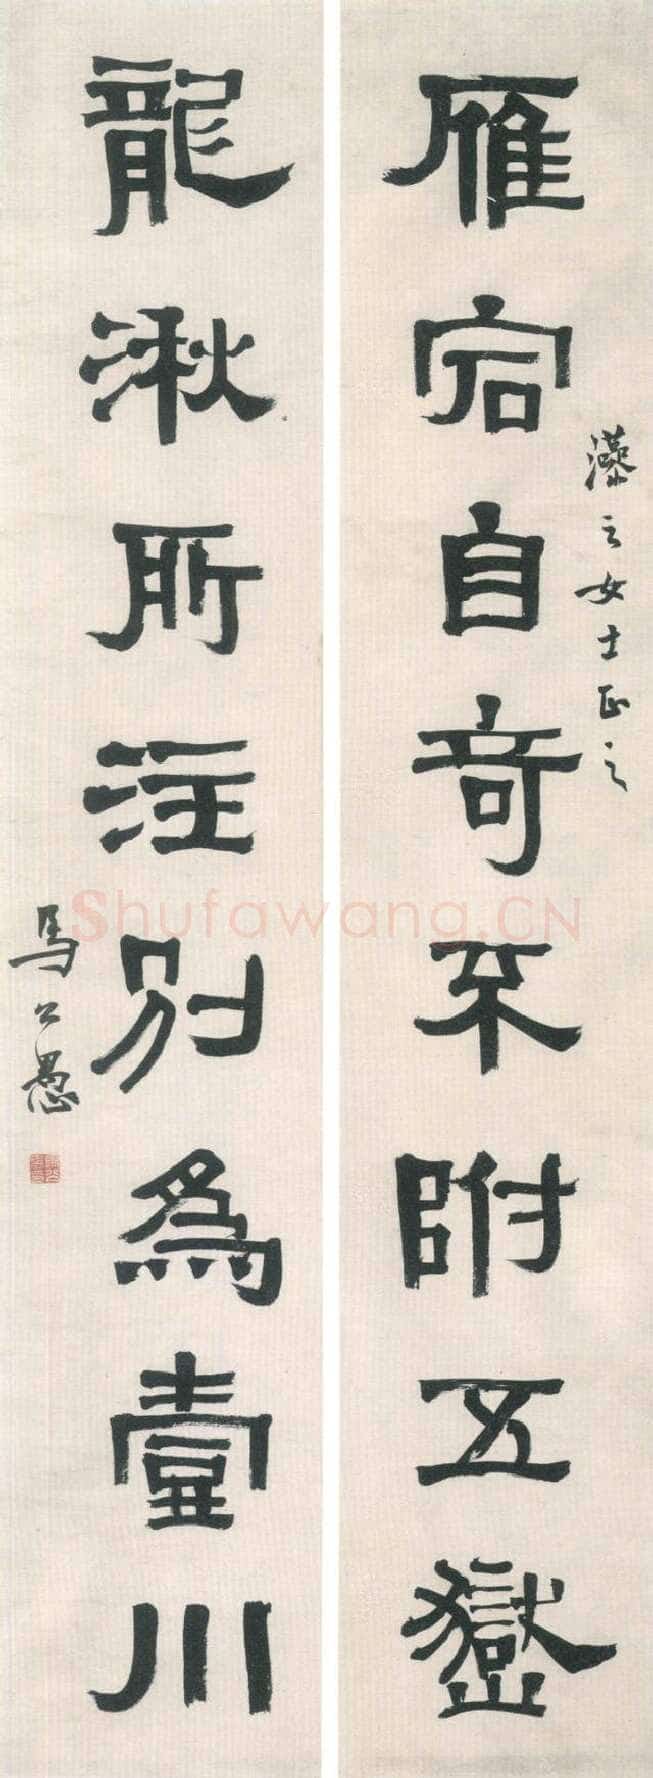 雁宕自奇不附五嶽
之女士正之
龍湫所注別爲壹川
馬公愚
Shufawang.CN